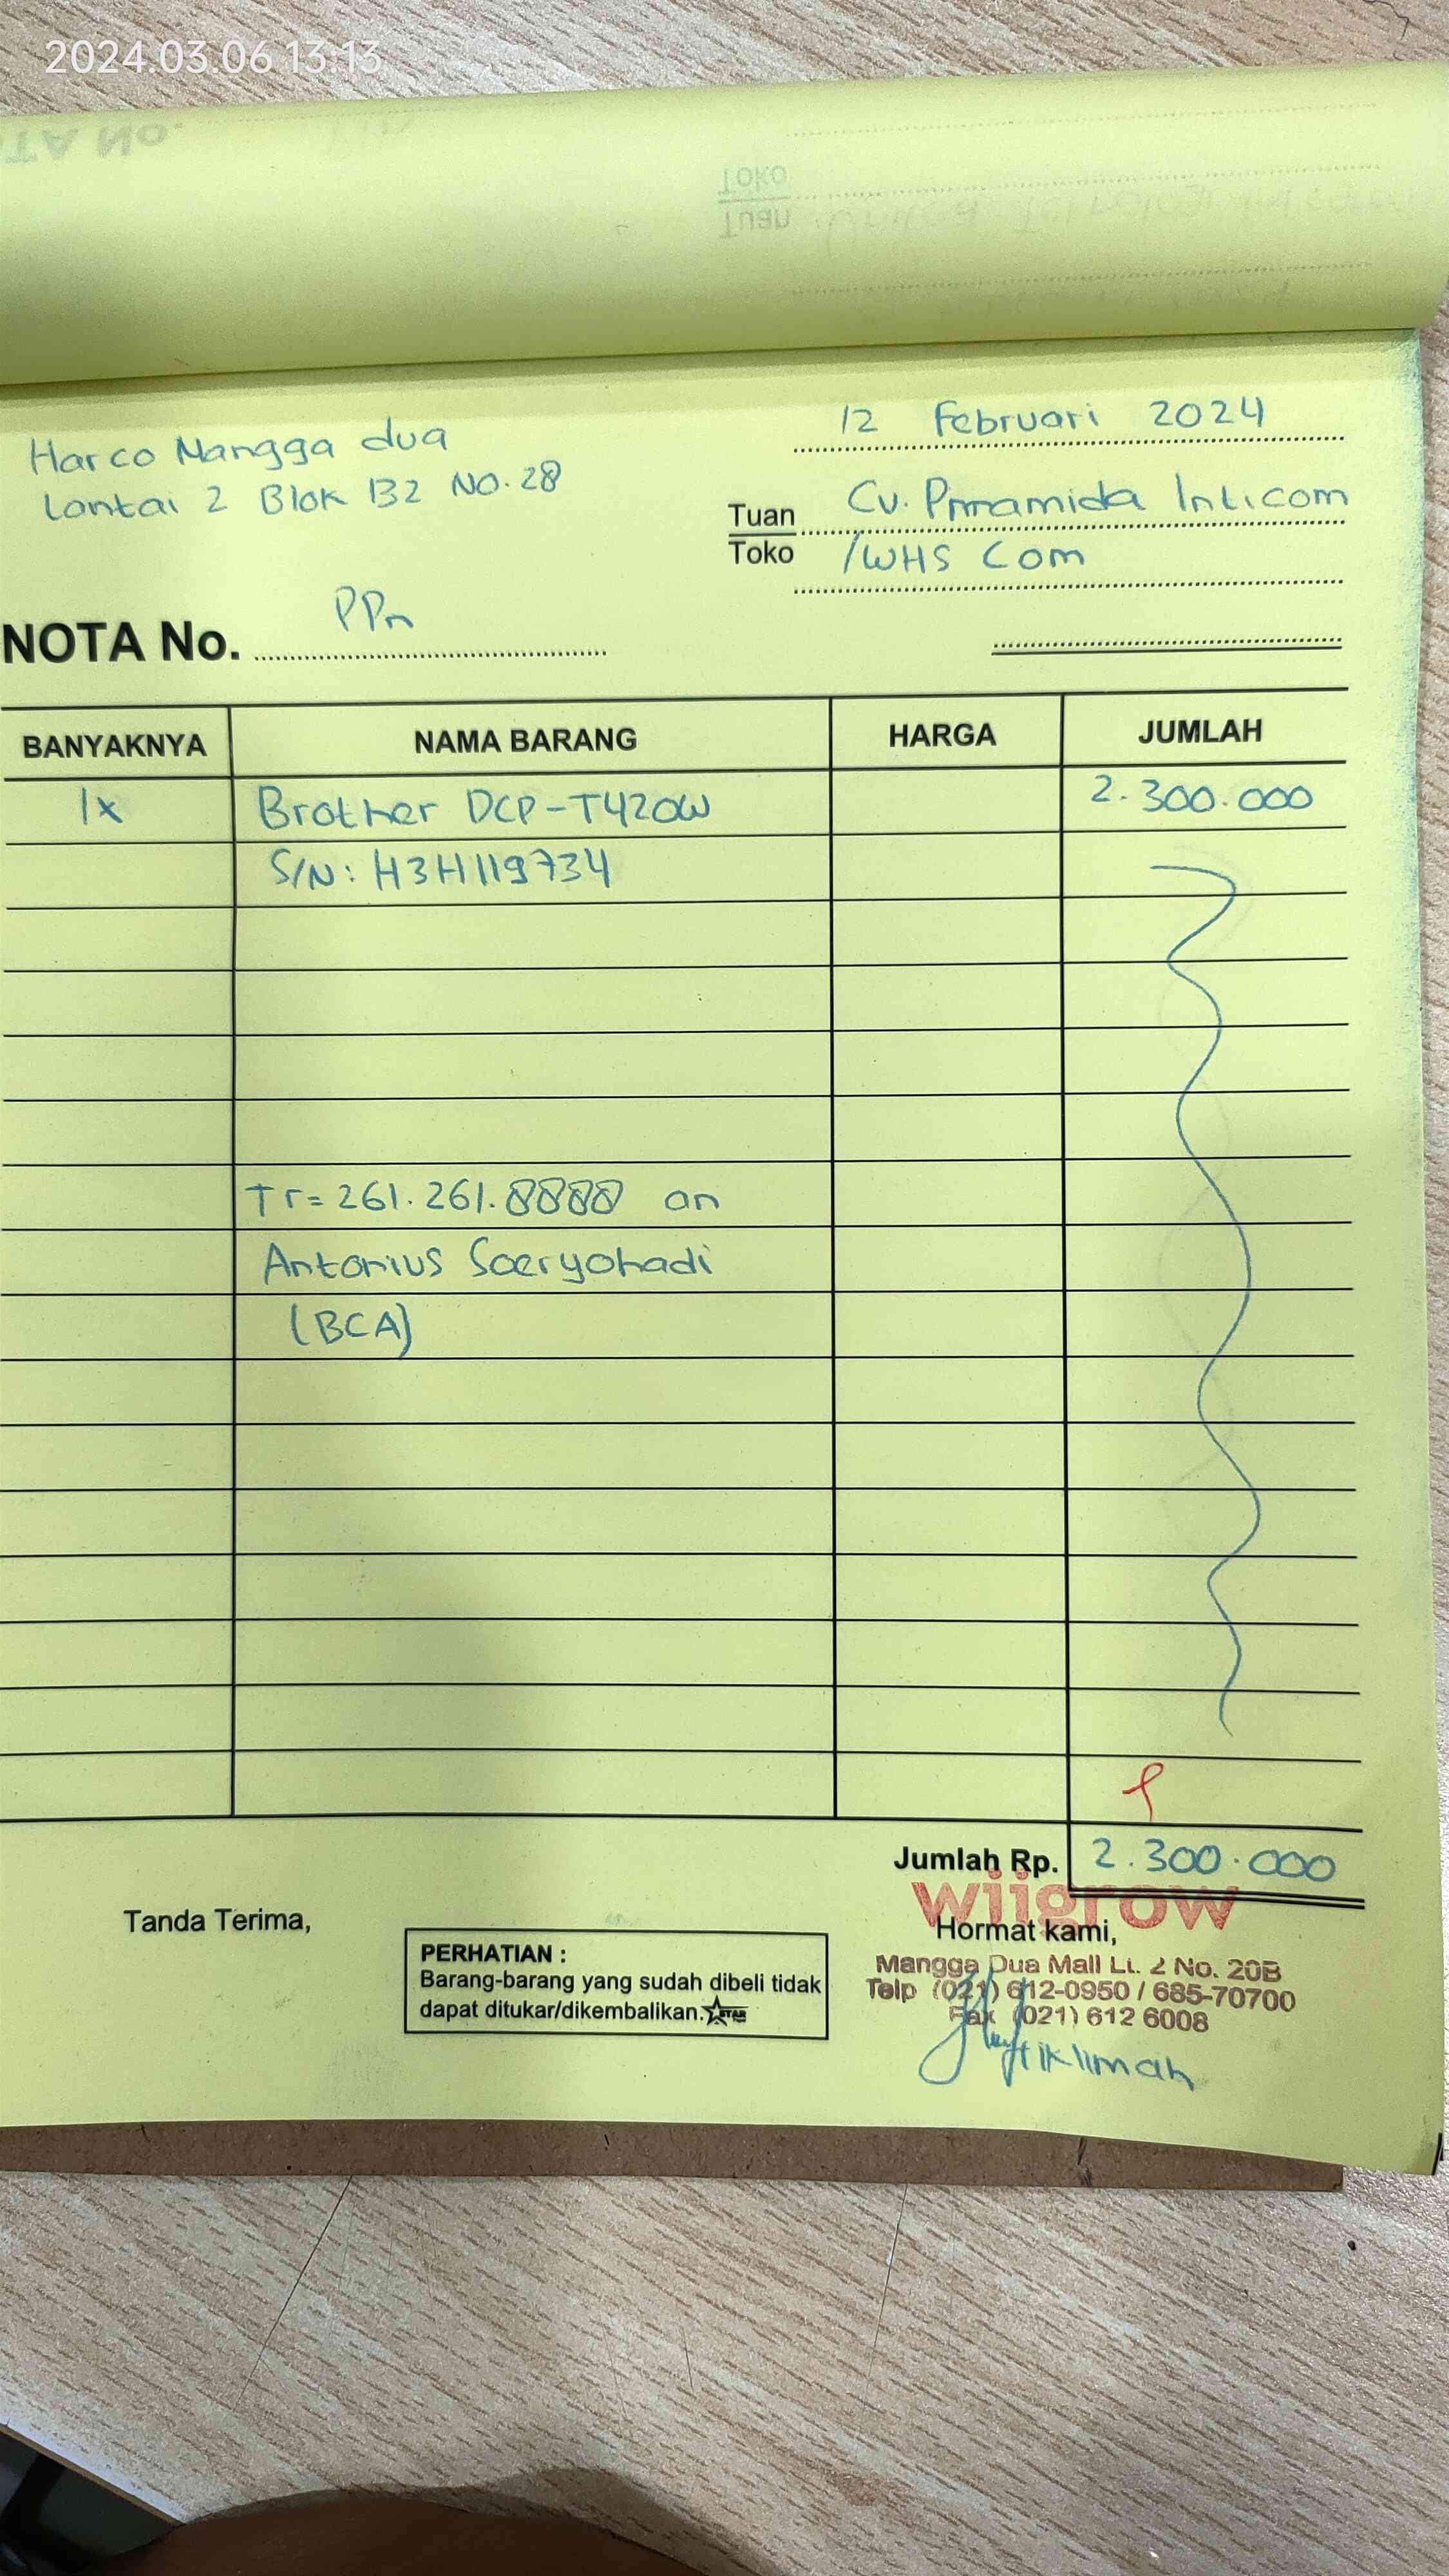 2024.03.06 13:13
TA No.
Toko
Tuan
12 Februari 2024
Harco Mangga dua
Lantai 2 Blok B2 No. 28
Tuan Cv. Pirramida Inticom
Toko /WHS Com
PPn
NOTA No.
BANYAKNYA NAMA BARANG HARGA JUMLAH
1x Brother DCP-T420W 2.300.000
S/N: H3H119734
Tr= 261.261.8888 an
Antonius Soeryohadi
(BCA)
Jumlah Rp. 2.300.000
wiigrow
Tanda Terima,
Hormat kami,
PERHATIAN :
Barang-barang yang sudah dibeli tidak
dapat ditukar/dikembalikan. STAR
Mangga Dua Mall Lt. 2 No. 20B
Telp (021) 612-0950 / 685-70700
Fax (021) 612 6008
iklimah